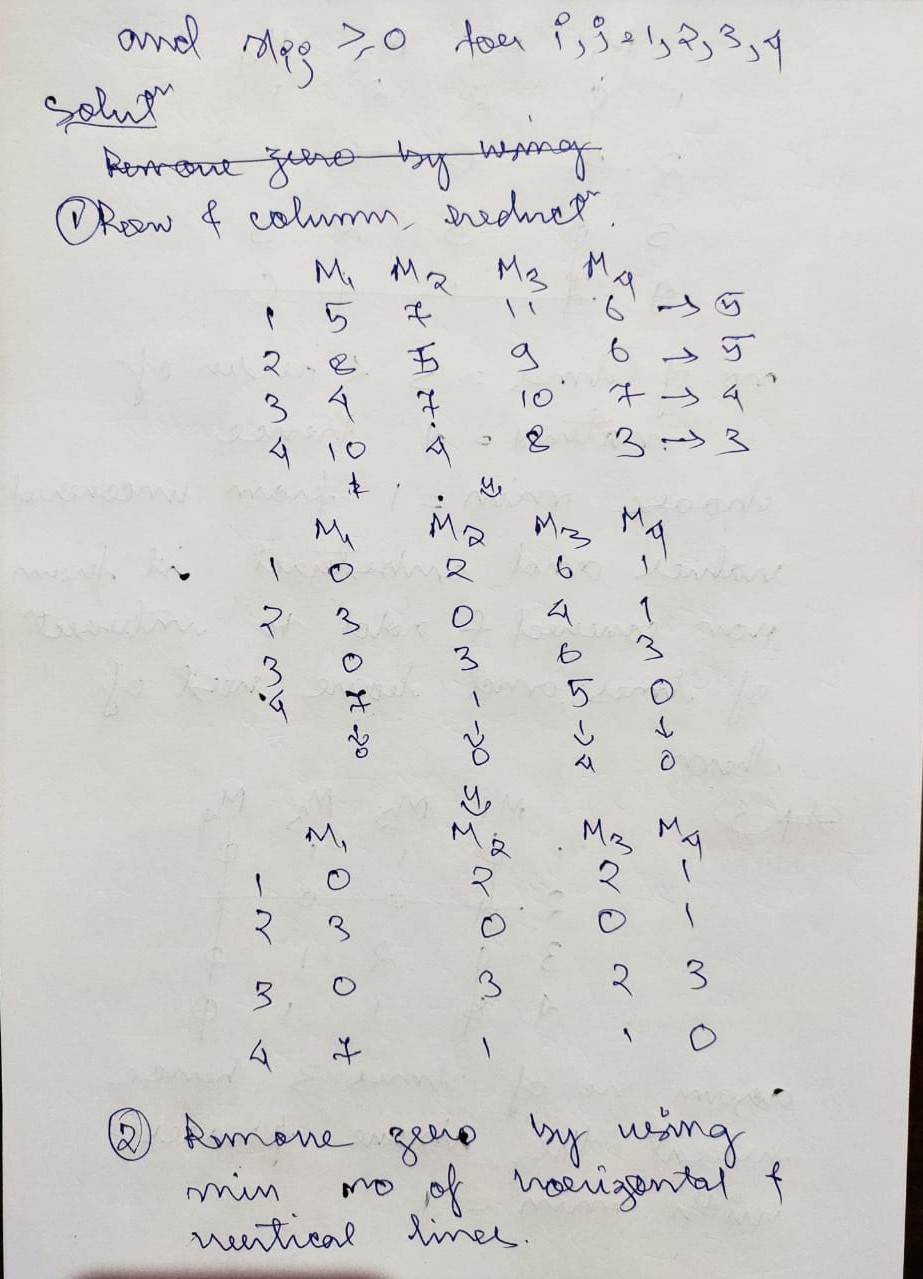 and xij ≥ 0 for i, j = 1, 2, 3, 4
Solutⁿ
Remove zero by using
① Row & column reductⁿ.
M1 M2 M3 M4
1 5 7 11 6 → 5
2 8 5 9 6 → 5
3 4 7 10 7 → 4
4 10 4 8 3 → 3
M1 M2 M3 M4
1 0 2 6 1
2 3 0 4 1
3 0 3 6 3
4 7 1 5 0
↓ ↓ ↓ ↓
0 0 4 0
⇓
M1 M2 M3 M4
1 0 2 2 1
2 3 0 0 1
3 0 3 2 3
4 7 1 1 0
② Remove zero by using
min no of horizontal &
vertical lines.